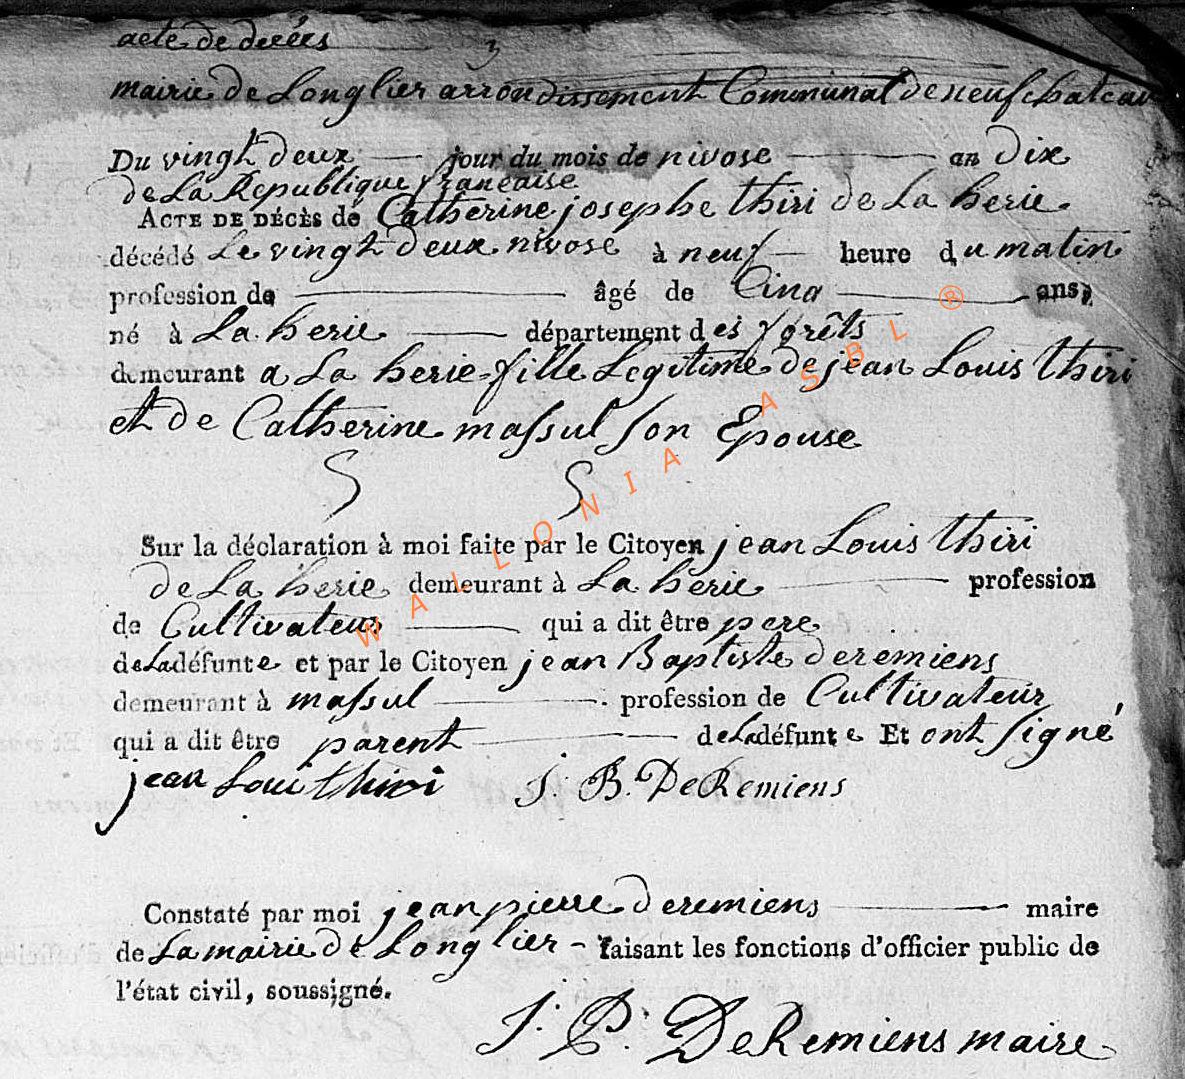 acte de décès
3
mairie de Longlier arrondissement Communal de neufchateau
Du vingt deux jour du mois de nivose an dix
de La Republique française
ACTE DE DÉCÈS de Catherine josephe thiri de La herie
décédé Le vingt deux nivose à neuf heure du matin
profession de âgé de Cinq ans,
né à La herie département des forêts
demeurant a La herie fille Legitime de jean Louis thiri
et de Catherine massul son Epouse
Sur la déclaration à moi faite par le Citoyen jean Louis thiri
de La herie demeurant à La herie profession
de Cultivateur qui a dit être pere
de La défunte et par le Citoyen jean Baptiste deremiens
demeurant à massul profession de Cultivateur
qui a dit être parent de La défunte Et ont signé
jean Loui thiri J. B. DeRemiens
Constaté par moi jean pierre deremiens maire
de La mairie de Longlier - faisant les fonctions d'officier public de
l'état civil, soussigné.
J. P. DeRemiens maire
WALLONIA ASBL ®